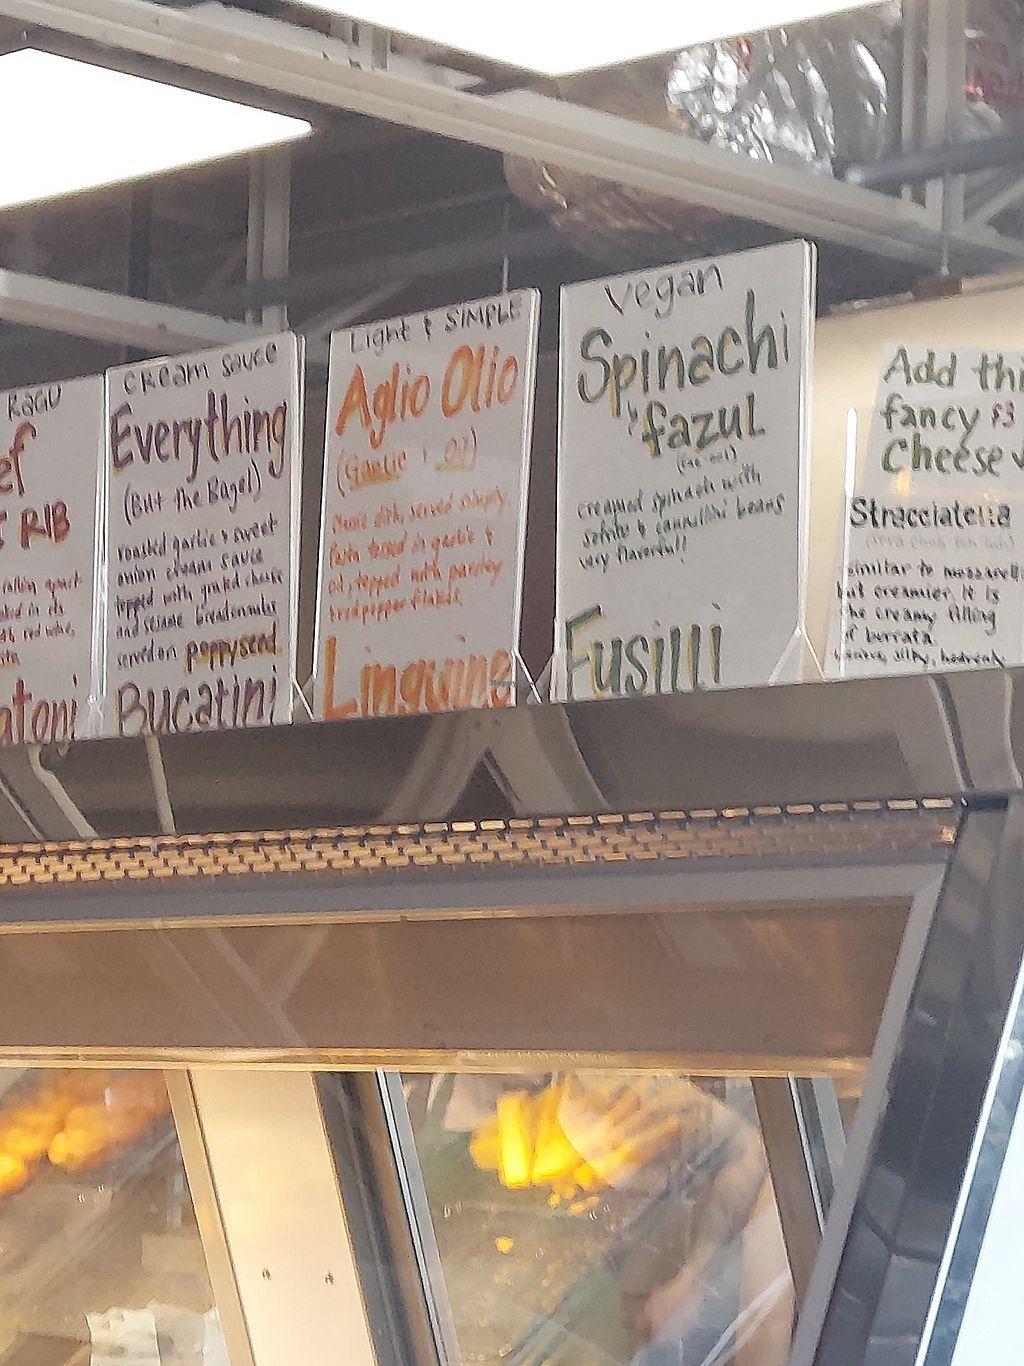 RAGU
RIB
Cream Sauce
Everything
(But the Bagel)
roasted garlic & sweet
onion cream sauce
topped with grated cheese
and sesame breadcrumbs
served on poppyseed
Bucatini
Light & SIMPLE
Aglio Olio
(Garlic & Oil)
dish, served simply.
Pasta tossed in garlic &
oil, topped with parsley
red pepper flakes.
Linguine
Vegan
Spinachi
& fazul
creamed spinach with
cannellini beans
very flavorful!
Fusilli
Add thi
fancy $3
Cheese
Stracciatella
similar to mozzarell
but creamier. it is
the creamy filling
of burrata.
silky, heavenly